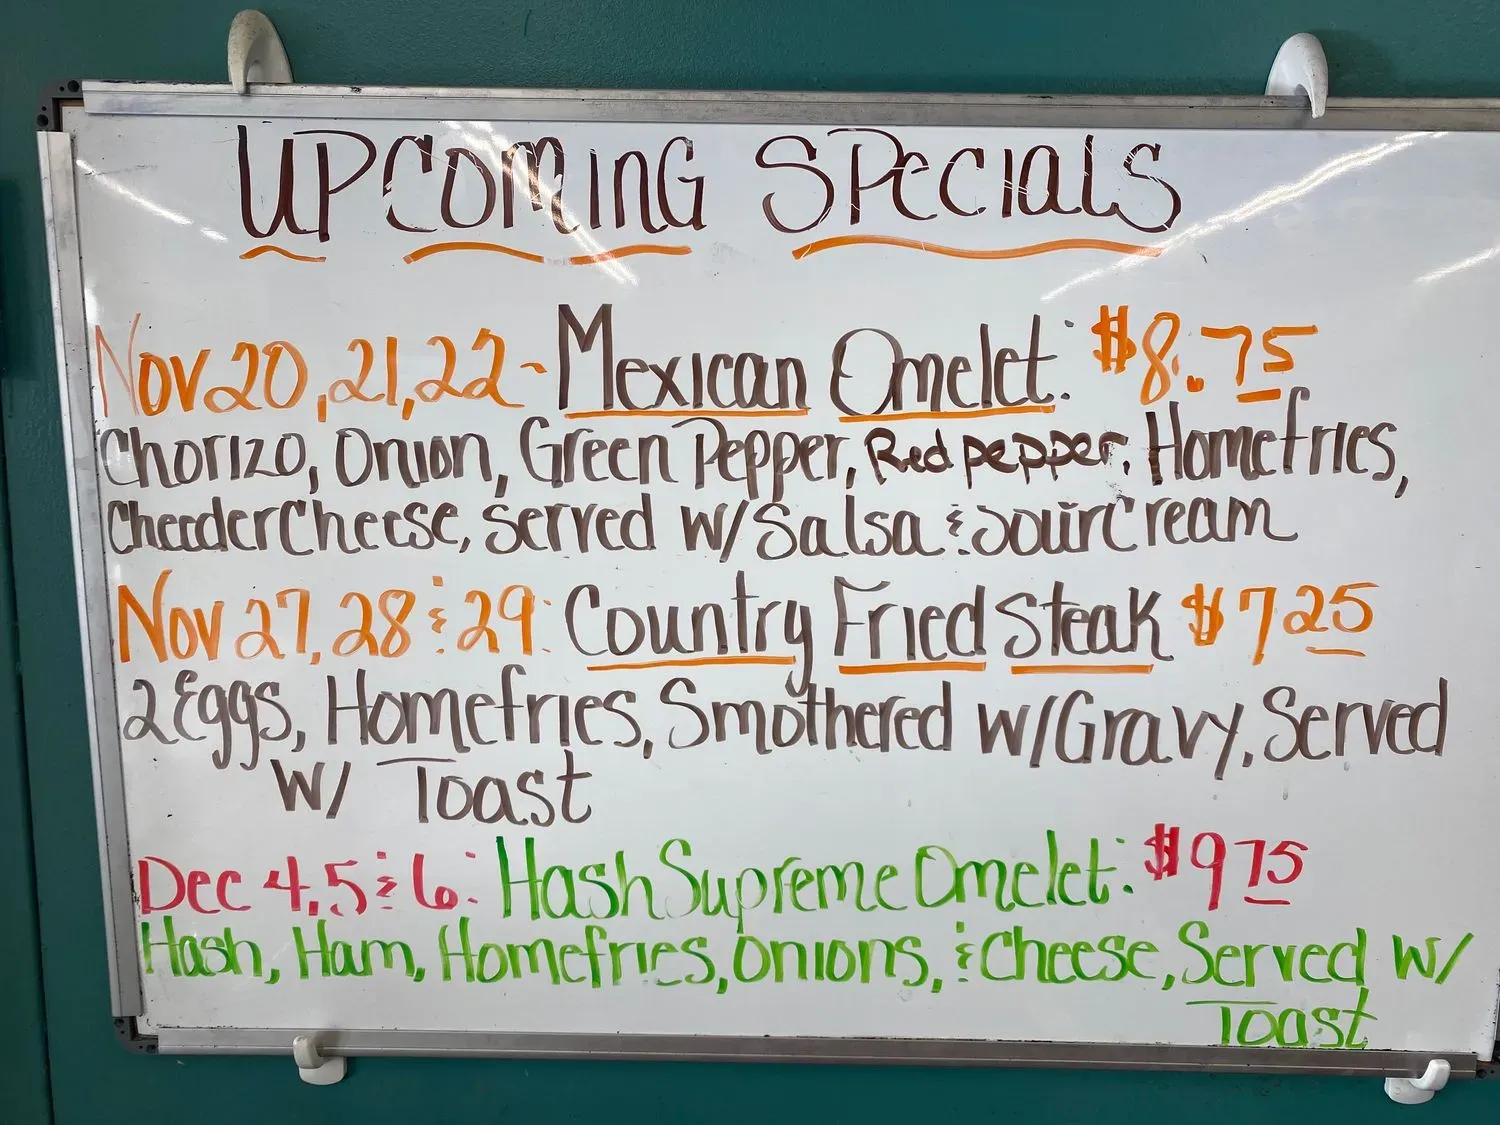 UPCOMING SPecials
Nov 20, 21, 22 - Mexican Omelet: $8.75
Chorizo, Onion, Green Pepper, Red pepper, Homefries,
CheederCheese, served w/ Salsa & SourCream
Nov 27, 28 & 29: Country Fried Steak $7 25
2 Eggs, Homefries, Smothered w/Gravy, Served
w/ Toast
Dec 4, 5 & 6: Hash Supreme Omelet: $9 75
Hash, Ham, Homefries, Onions, & Cheese, Served w/
Toast